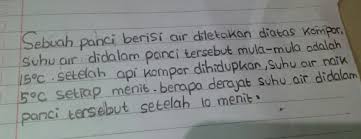 Sebuah panci berisi air diletakan diatas kompor.
suhu air didalam panci tersebut mula-mula adalah
15°C. setelah api kompor dihidupkan, suhu air naik
5°C setiap menit. berapa derajat suhu air didalam
panci tersebut setelah 10 menit.